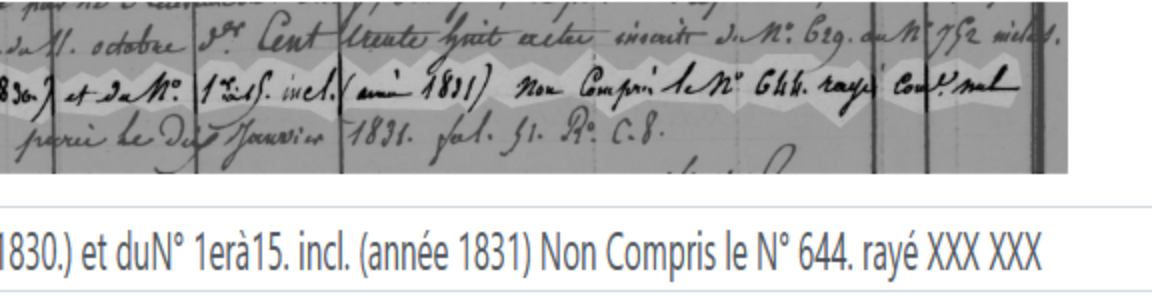 du 11. octobre dr. Cent trente huit actes inscrits du N°. 629. au N° 752 inclus.
830.) et du N°. 1er à 15. incl. (année 1831) Non Compris le N° 644. rayé comme nul
Janvier 1831. fol. 51. R°. C. 8.
1830.) et duN° 1erà15. incl. (année 1831) Non Compris le N° 644. rayé XXX XXX